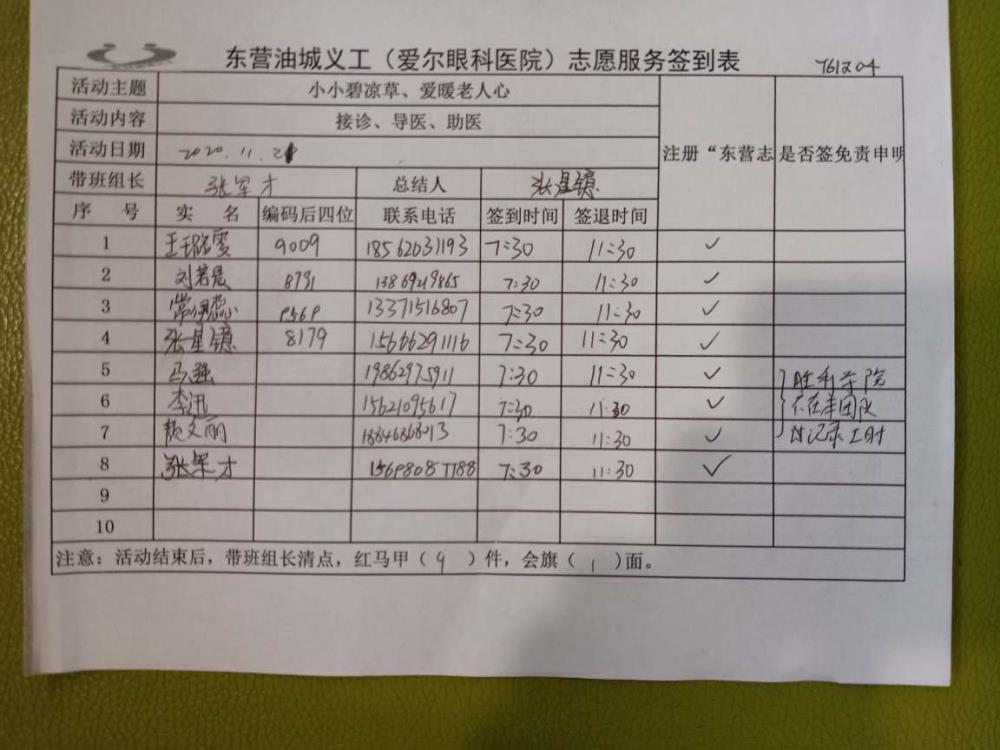 东营油城义工（爱尔眼科医院）志愿服务签到表 761204
活动主题 小小碧凉草、爱暖老人心
活动内容 接诊、导医、助医
活动日期 2020.11.21 注册“东营志 是否签免责申明
带班组长 张军才 总结人 张星镱
序 号 实 名 编码后四位 联系电话 签到时间 签退时间
1 王璐雯 9009 18562031193 7:30 11:30 ✓
2 刘若晨 8791 13869219865 7:30 11:30 ✓
3 常 蕊 13371516807 7:30 11:30 ✓
4 张星镱 8179 15666291116 7:30 11:30 ✓
5 马强 19862975911 7:30 11:30 ✓ 胜利学院
6 李迅 15621095617 7:30 11:30 ✓ 不在本团队
7 颜文丽 7:30 11:30 ✓ 记录工时
8 张军才 15698087188 7:30 11:30 ✓
9
10
注意：活动结束后，带班组长清点，红马甲（9）件，会旗（1）面。